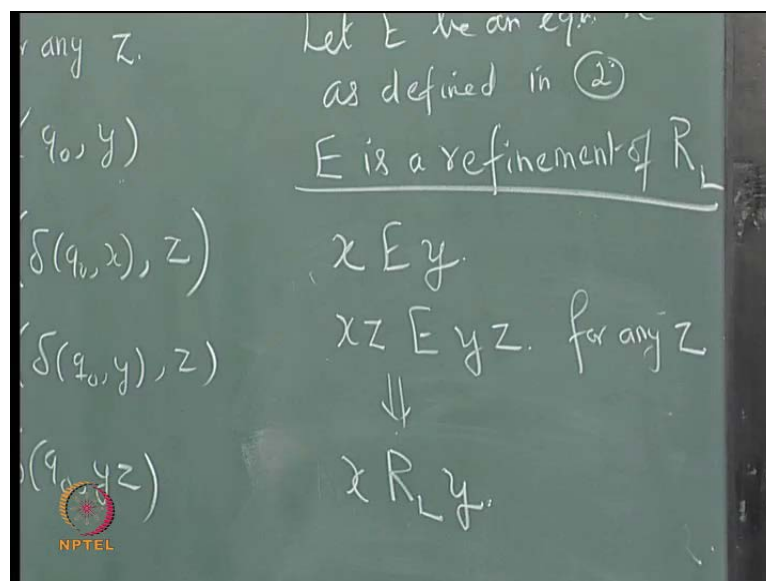 any Z.
q₀, y)
(δ(q₀, x), z)
(δ(q₀, y), z)
(q₀, yz)
Let E be an eqn.
as defined in ②
E is a refinement of R_L
x E y.
xz E yz. for any z
⇓
x R_L y.
NPTEL